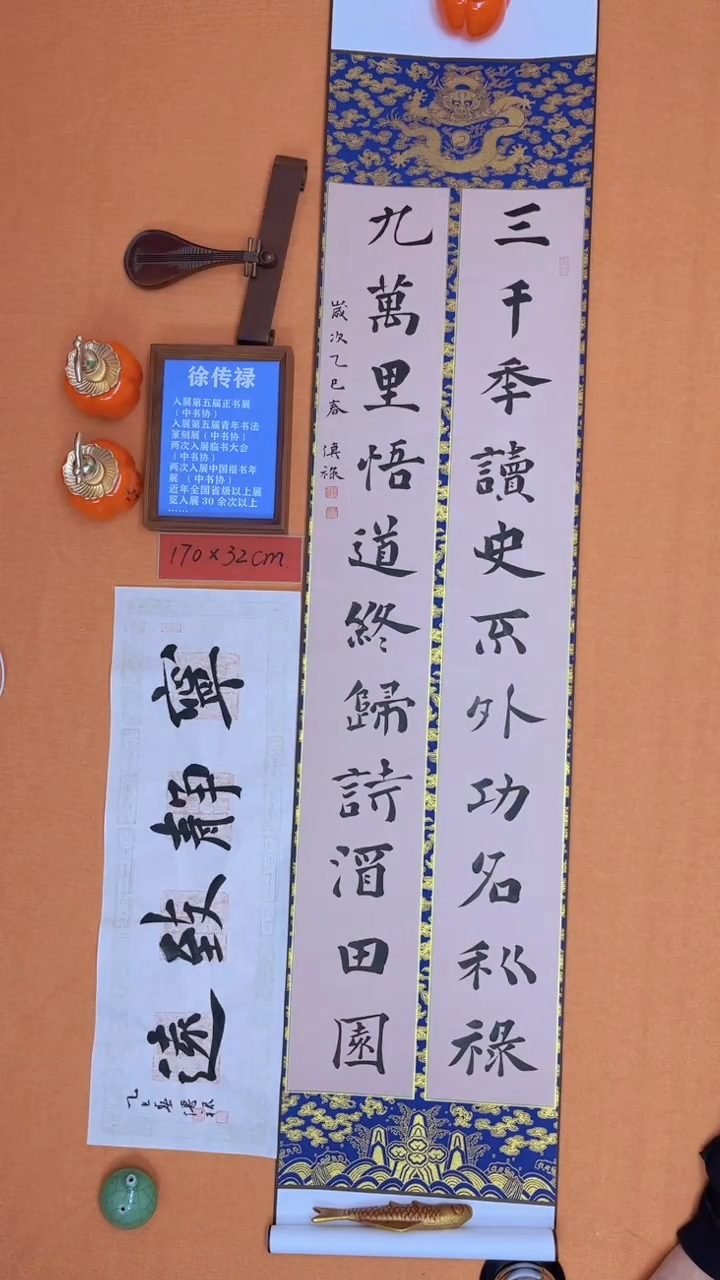 三千秊讀史不外功名利祿
九萬里悟道終歸詩酒田園
歲次乙巳春 傳祿
徐传禄
入展第五届正书展
(中书协)
入展第五届青年书法
篆刻展(中书协)
两次入展临书大会
(中书协)
两次入展中国楷书年
展(中书协)
近年全国省级以上展
览入展30余次以上
......
170×32cm.
寧靜致遠
乙巳春